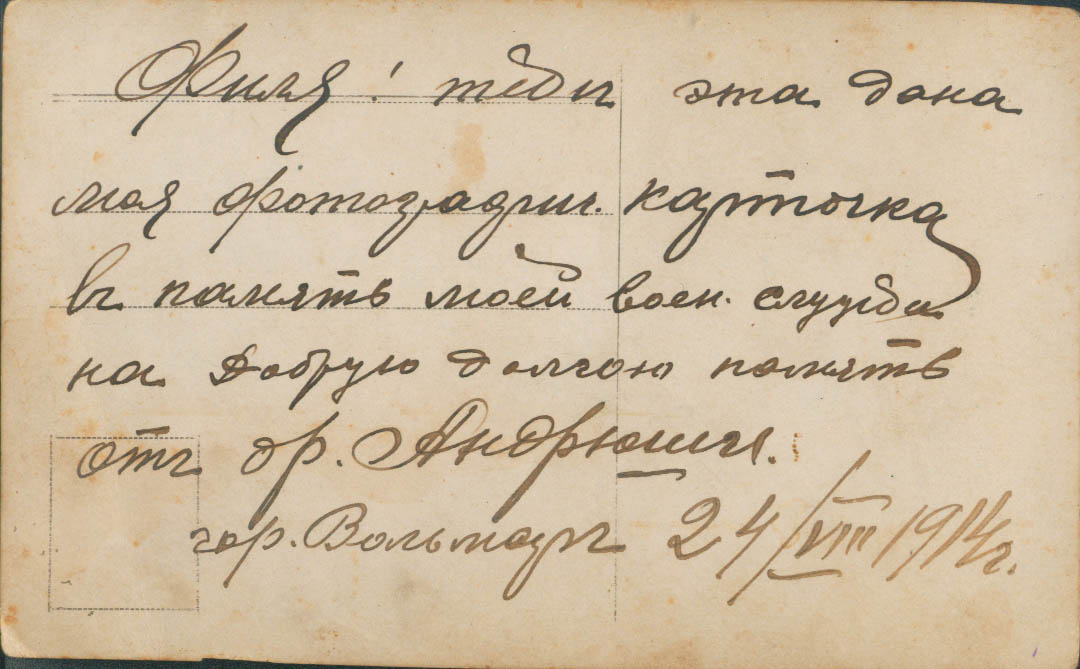 Филя! тебы эта дана
моя фотографич. карточка
въ память моей воен. службы
на добрую долгою память
отъ бр. Андрюши.
гор. Вольмаръ 24/VIII 1914г.